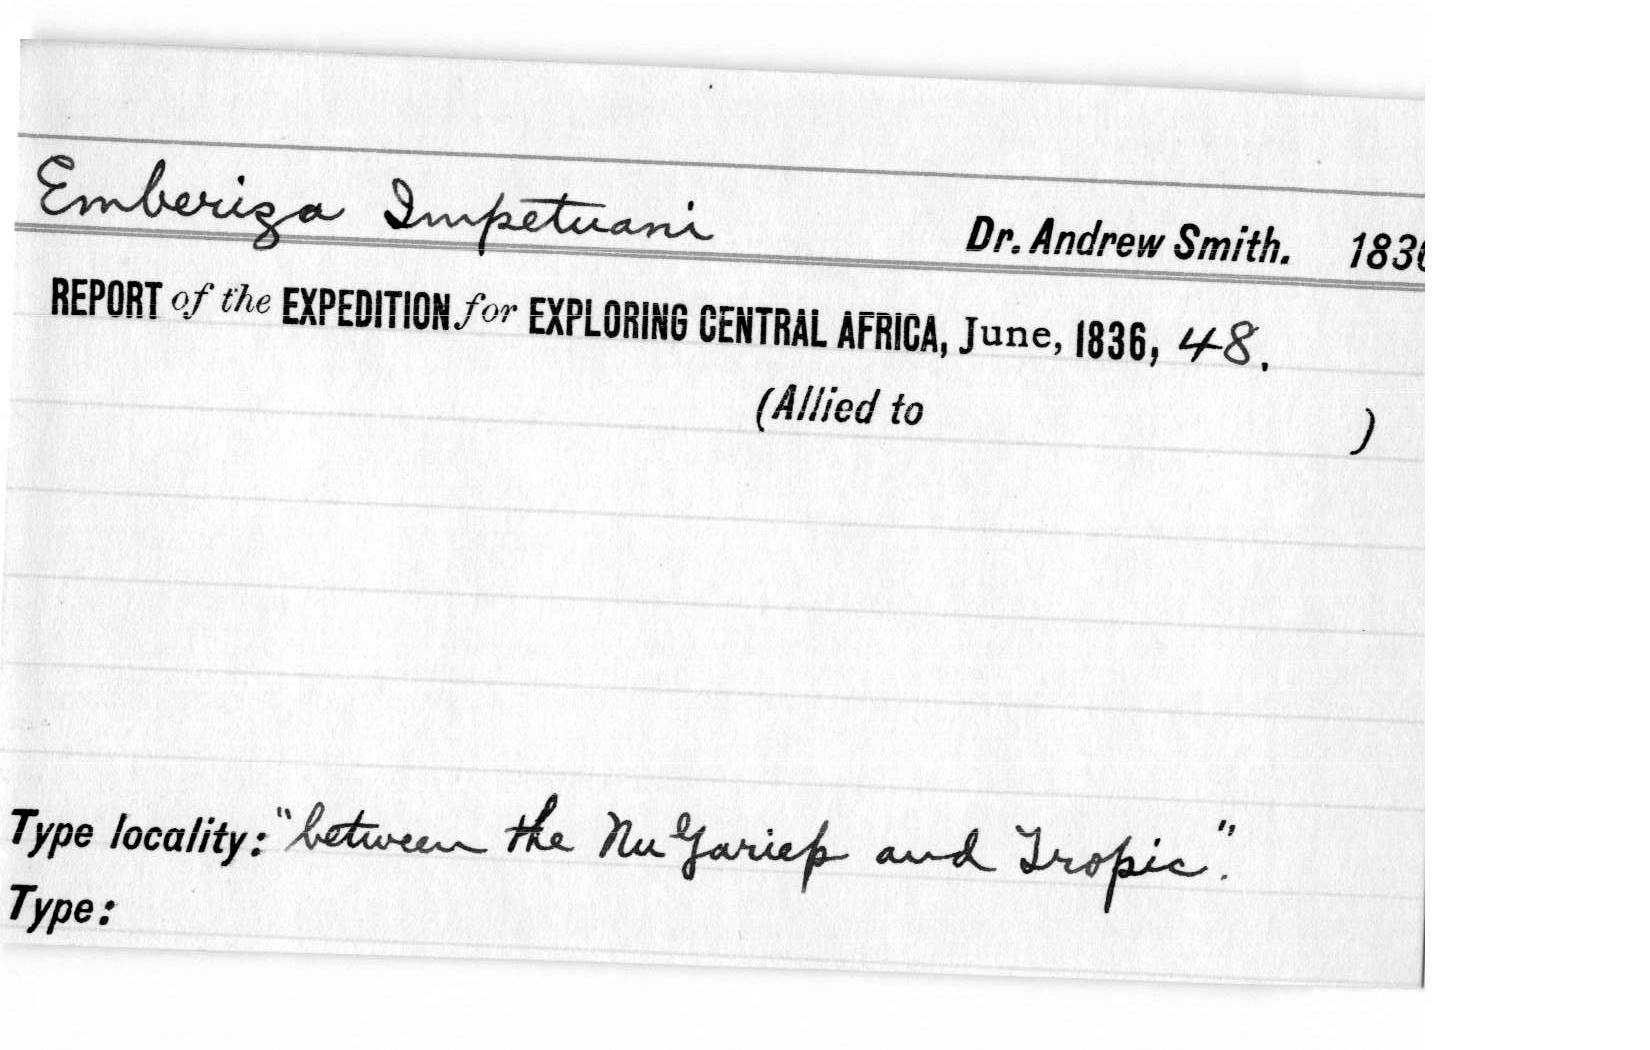 Emberiza Impetuani Dr. Andrew Smith. 1836
REPORT of the EXPEDITION for EXPLORING CENTRAL AFRICA, June, 1836, 48.
(Allied to )
Type locality: "between the Nu Gariep and Tropic".
Type: